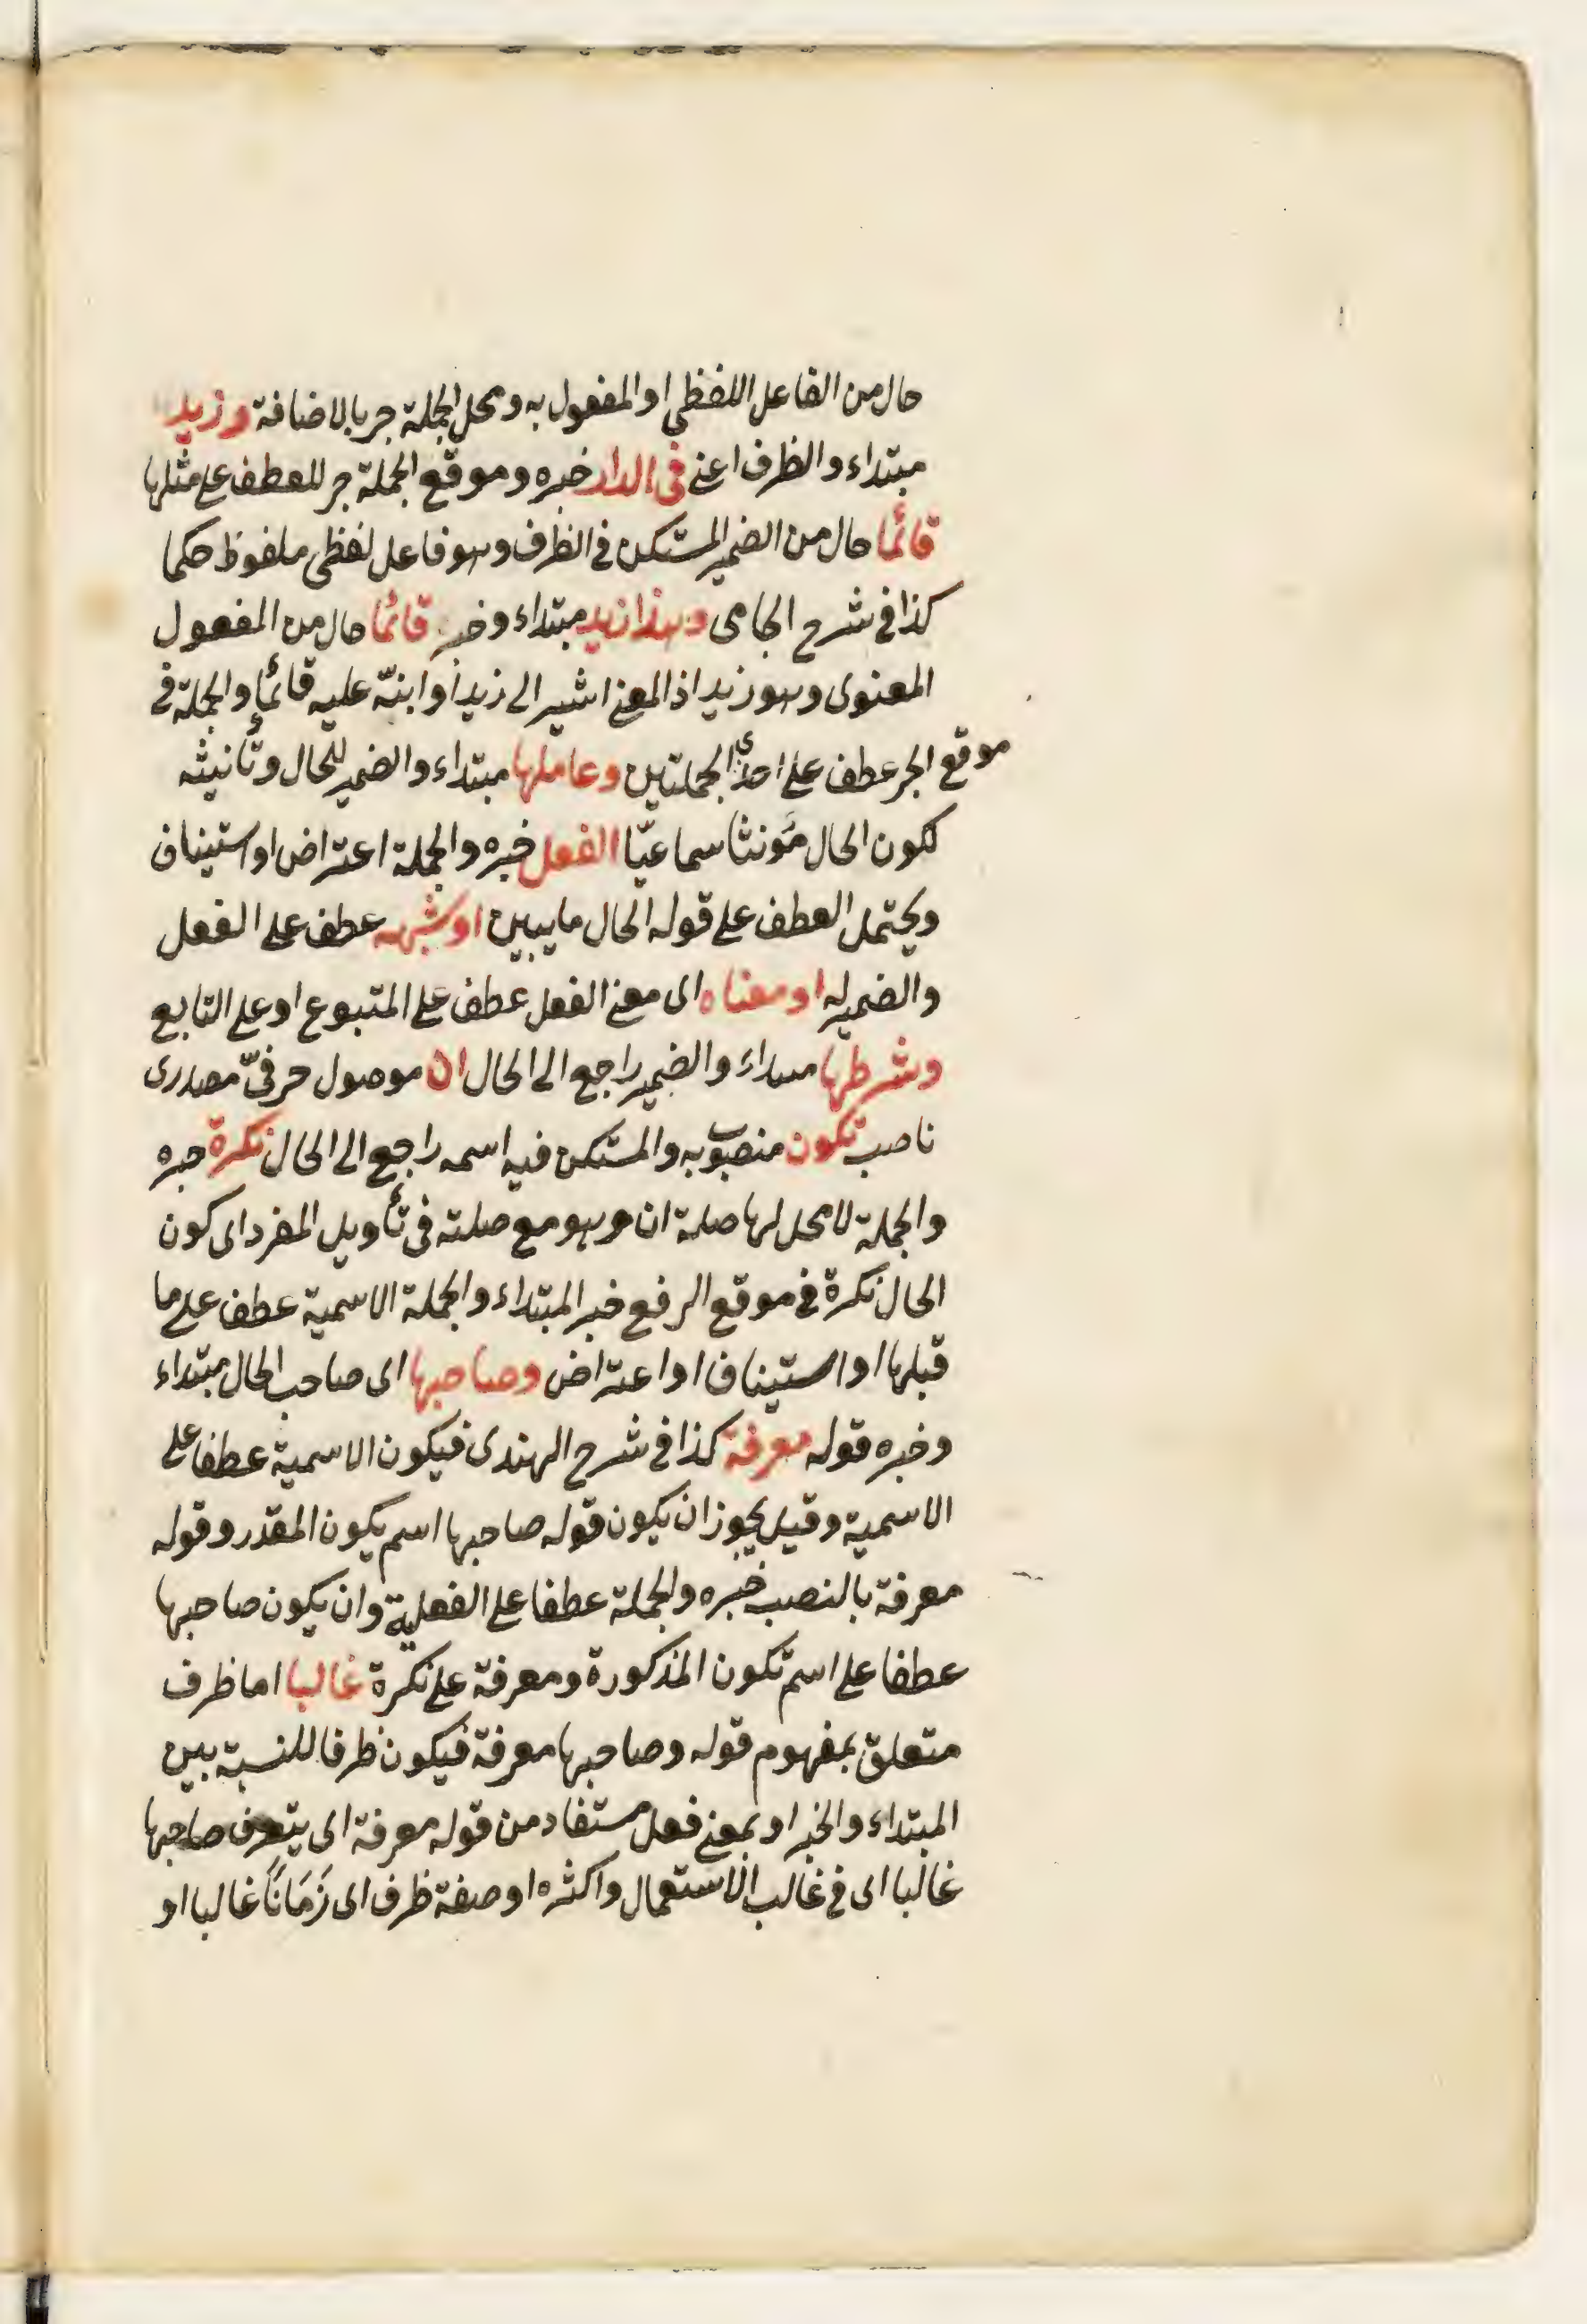 حال من الفاعل اللفظى او المفعول به ومحل الجملة جر بالاضافة وزيد
مبتداء والظرف اعنے فى الدار خبره وموقع الجملة جر للعطف علے مثلها
قائما حال من الضمير المستكن فى الظرف وهو فاعل لفظى ملفوظ حكما
كذا فى شرح الجامى وهذا زيد مبتداء وخبر قائما حال من المفعول
المعنوى وهو زيد اذ المعنے اشير الى زيدا وابنّه عليه قائما والجملة فى
موقع الجر عطف على احدى الجملتين وعاملها مبتداء والضمير للحال وتأنيثه
لكون الحال مؤنثا سماعيّا الفعل خبره والجملة اعتراض او استيناف
ويحتمل العطف على قوله الحال ما يبين او شبهه عطف على الفعل
والضمير له او معناه اى معنے الفعل عطف على المتبوع او على التابع
وشرطها مبتداء والضمير راجع الى الحال ان موصول حرفىّ مصدرى
ناصب تكون منصوب به والمستكن فيه اسمه راجع الى الحال نكرة خبره
والجملة لا محل لها صلة ان وهو مع صلته فى تأويل المفرد اى كون
الحال نكرة فى موقع الرفع خبر المبتداء والجملة الاسمية عطف على ما
قبلها او استيناف او اعتراض وصاحبها اى صاحب الحال مبتداء
وخبره قوله معرفة كذا فى شرح الهندى فيكون الاسمية عطفا على
الاسمية وقيل يجوز ان يكون قوله صاحبها اسم يكون المقدر وقوله
معرفة بالنصب خبره والجملة عطفا على الفعلية وان يكون صاحبها
عطفا على اسم تكون المذكورة ومعرفة على نكرة غالبا اما ظرف
متعلق بمفهوم قوله وصاحبها معرفة فيكون ظرفا للنسبة بين
المبتداء والخبر او بمعنے فعل مستفاد من قوله معرفة اى يتعرف صاحبها
غالبا اى فى غالب الاستعمال واكثره او صفة ظرف اى زَمَانًا غالبا او